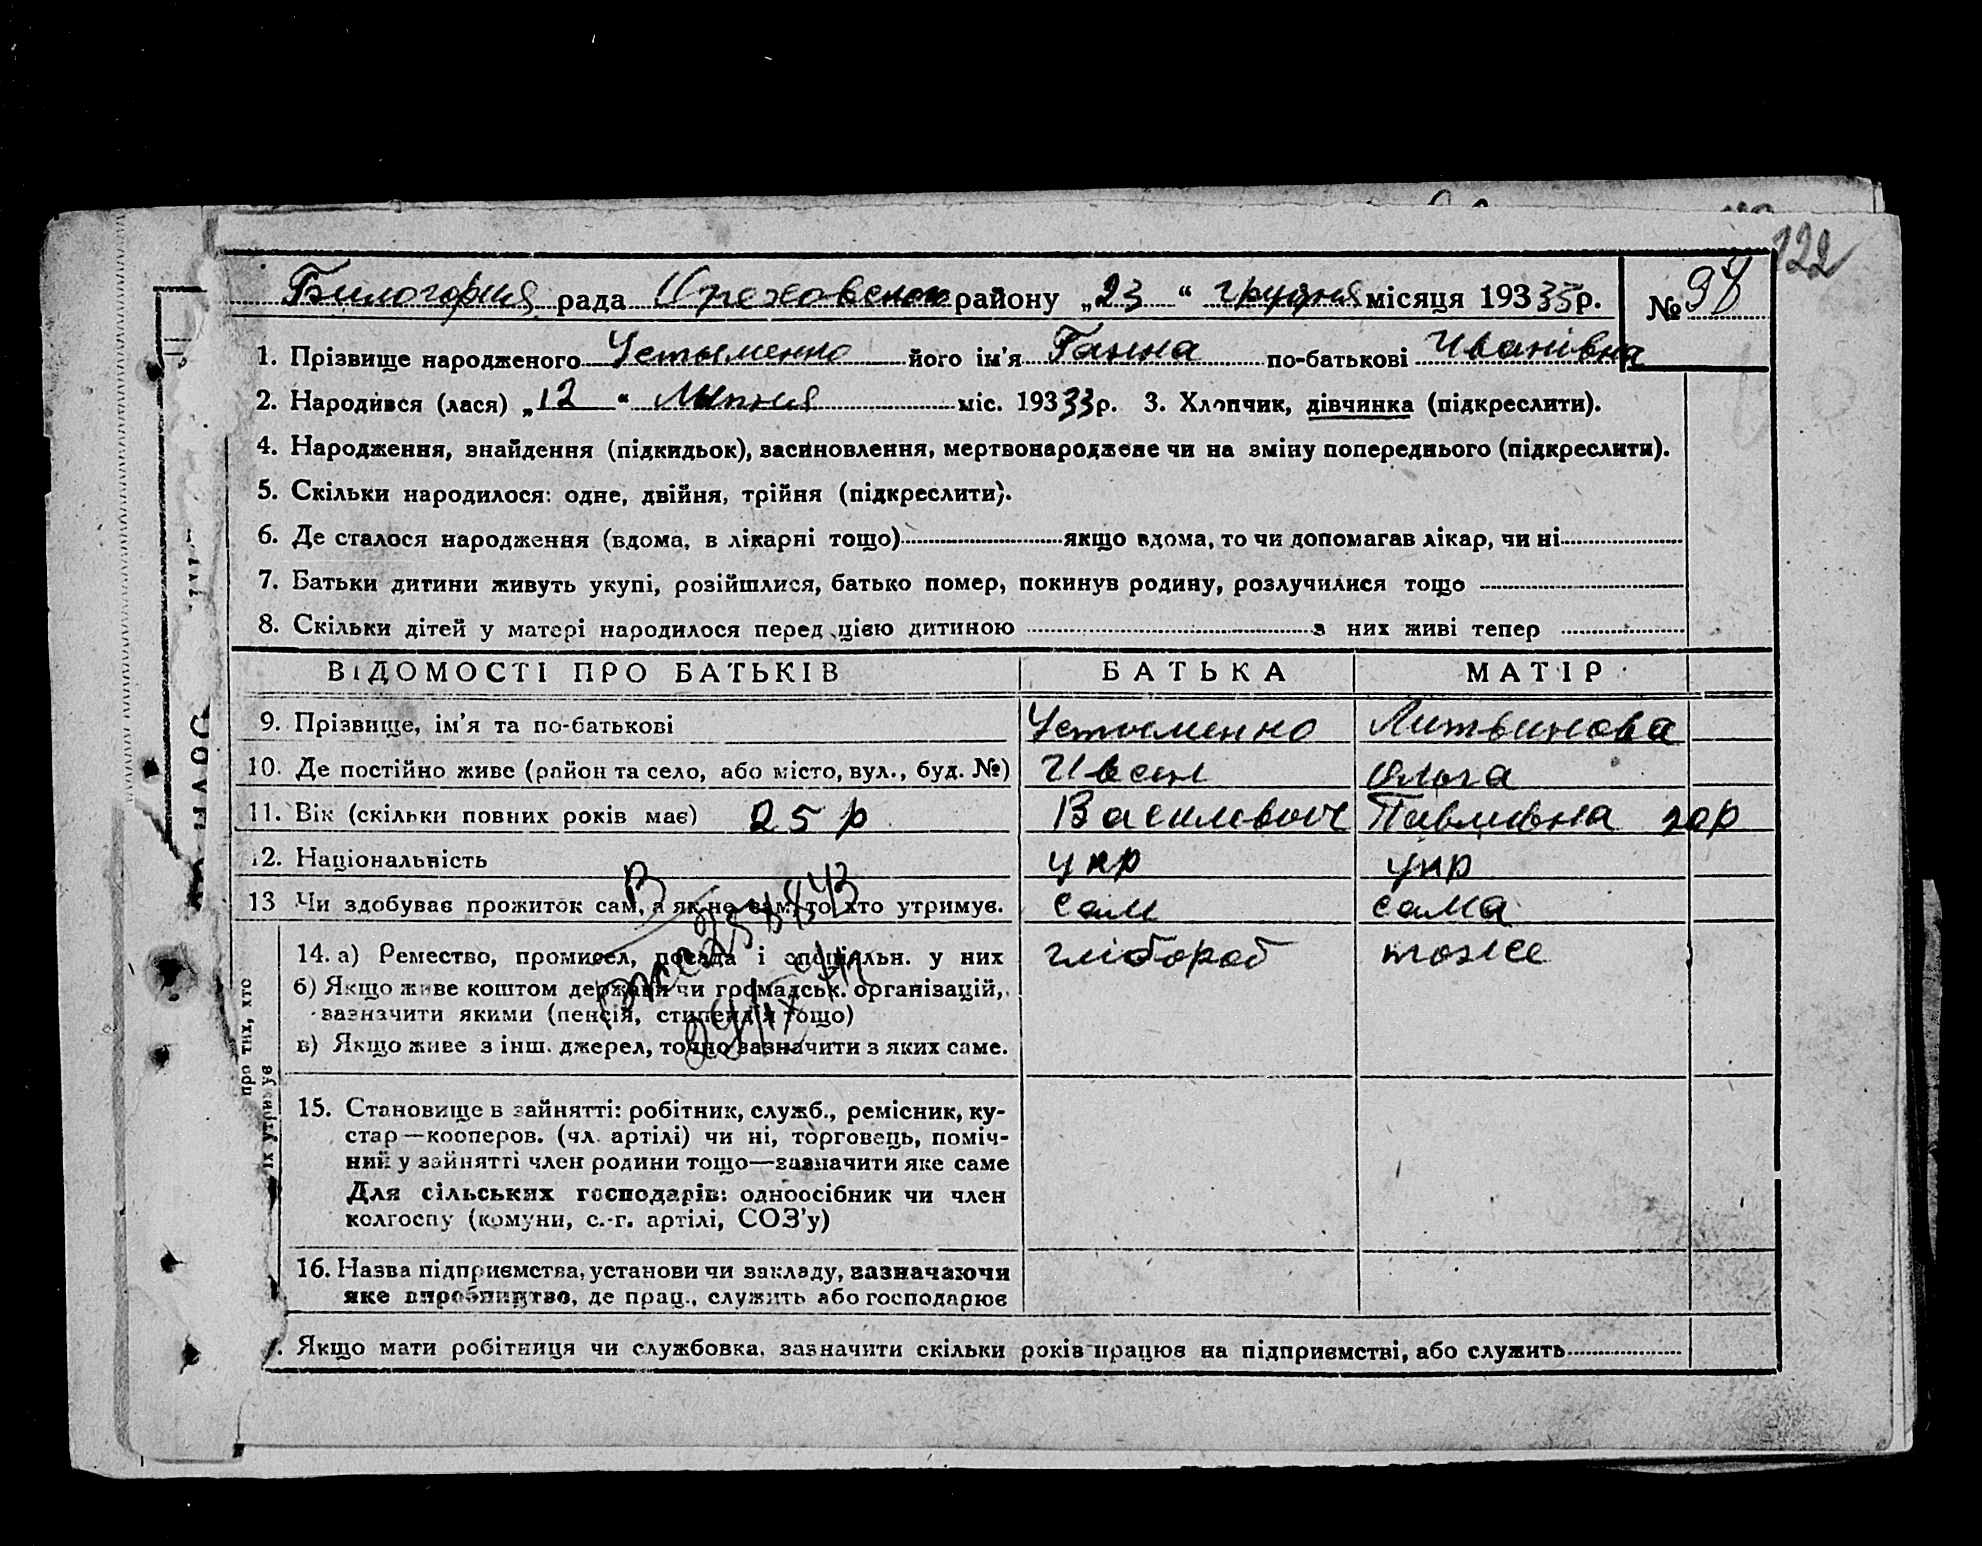 122
Билогория рада Ореховского району „23“ грудня місяця 193 35 р. № 98
1. Прізвище народженого Устыменко його ім'я Ганна по-батькові Иванівна
2. Народився (лася) „12“ Липня міс. 193 33 р. 3. Хлопчик, дівчинка (підкреслити).
4. Народження, знайдення (підкидьок), засиновлення, мертвонароджене чи на зміну попереднього (підкреслити).
5. Скільки народилося: одне, двійня, трійня (підкреслити).
6. Де сталося народження (вдома, в лікарні тощо) якщо вдома, то чи допомагав лікар, чи ні
7. Батьки дитини живуть укупі, розійшлися, батько помер, покинув родину, розлучилися тощо
8. Скільки дітей у матері народилося перед цією дитиною з них живі тепер
ВІДОМОСТІ ПРО БАТЬКІВ БАТЬКА МАТІР
9. Прізвище, ім'я та по-батькові Устыменко Литвинова
10. Де постійно живе (район та село, або місто, вул., буд. №) Иван Ольга
11. Вік (скільки повних років має) 25 р Василевич Павливна 20р
12. Національність укр укр
13 Чи здобуває прожиток сам, а як не сам, то хто утримує. сам сама
14. а) Ремество, промисел, посада і спеціяльн. у них хлібороб тоже
б) Якщо живе коштом держави чи громадськ. організацій,
зазначити якими (пенсія, стипендія тощо)
в) Якщо живе з інш. джерел, точно зазначити з яких саме.
про тих, хто
їх утримує
15. Становище в зайнятті: робітник, служб., ремісник, ку-
стар—кооперов. (чл. артілі) чи ні, торговець, поміч-
ний у зайнятті член родини тощо—зазначити яке саме
Для сільських господарів: одноосібник чи член
колгоспу (комуни, с.-г. артілі, СОЗ'у)
16. Назва підприємства, установи чи закладу, зазначаючи
яке виробництво, де прац., служить або господарює
Якщо мати робітниця чи службовка, зазначити скільки років працює на підприємстві, або служить